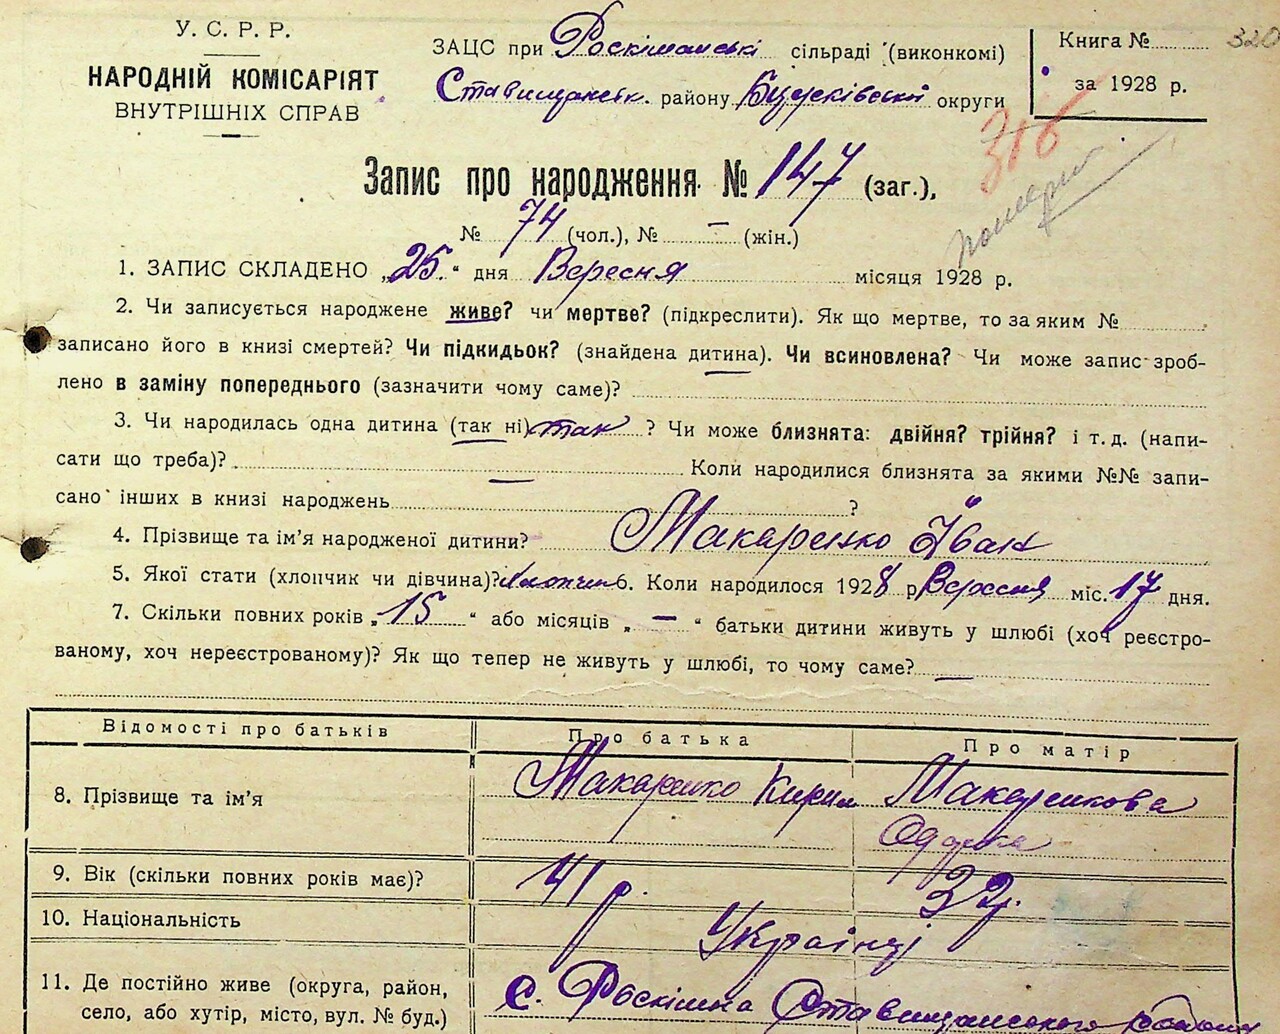 У. С. Р. Р.
НАРОДНІЙ КОМІСАРІЯТ
ВНУТРІШНІХ СПРАВ
ЗАЦС при Роскішанські сільраді (виконкомі)
Ставищанськ. району Білоцерківської округи
Книга № 320
за 1928 р.
316
помер
Запис про народження № 147 (заг.),
№ 74 (чол.), № — (жін.)
1. ЗАПИС СКЛАДЕНО „25“ дня Вересня місяця 1928 р.
2. Чи записується народжене живе? чи мертве? (підкреслити). Як що мертве, то за яким №
записано його в книзі смертей? Чи підкидьок? (знайдена дитина). Чи всиновлена? Чи може запис зроб-
лено в заміну попереднього (зазначити чому саме)?
3. Чи народилась одна дитина (так ні) так ? Чи може близнята: двійня? трійня? і т. д. (напи-
сати що треба)? — Коли народилися близнята за якими №№ запи-
сано інших в книзі народжень ?
4. Прізвище та ім'я народженої дитини? Макаренко Іван
5. Якої стати (хлопчик чи дівчина)? Хлопчик 6. Коли народилося 1928 р. Вересня міс. 17 дня.
7. Скільки повних років „15“ або місяців „—“ батьки дитини живуть у шлюбі (хоч реєстро-
ваному, хоч нереєстрованому)? Як що тепер не живуть у шлюбі, то чому саме? —
Відомості про батьків Про батька Про матір
8. Прізвище та ім'я Макаренко Кирил Макаренкова
9. Вік (скільки повних років має)? 41 р. 32 р.
10. Національність Українці
11. Де постійно живе (округа, район, с. Роскішна Ставищанського району
село, або хутір, місто, вул. № буд.)